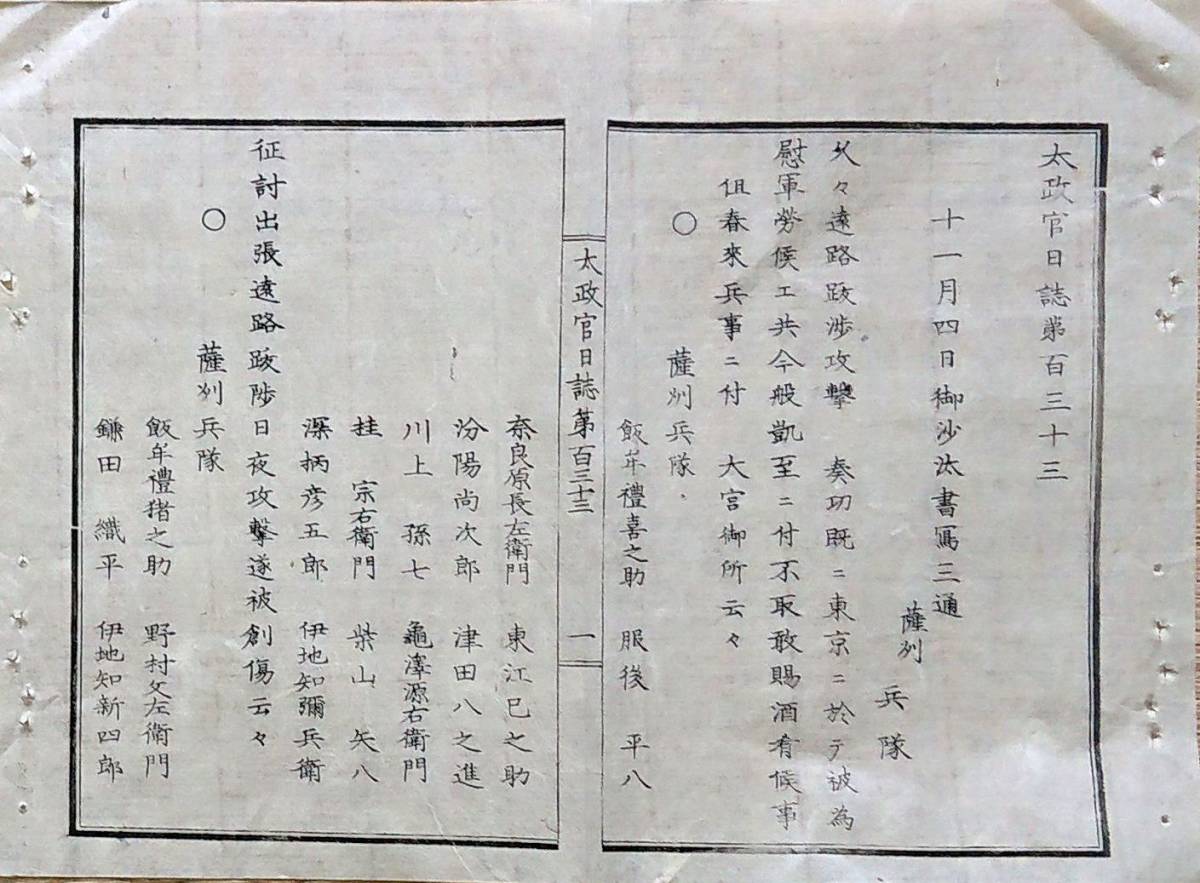 太政官日誌第百三十三
十一月四日御沙汰書寫三通
薩州 兵隊
久々遠路跋渉攻擊 奏功既ニ東京ニ於テ被為
慰軍勞候エ共今般凱至ニ付不取敢賜酒肴候事
但春來兵事ニ付 大宮御所云々
〇
薩州兵隊
飯牟禮喜之助 服後 平八
太政官日誌第百三十三 一
奈良原長左衞門 東江巳之助
汾陽尚次郎 津田八之進
川上 孫七 龜澤源右衞門
挂 宗右衞門 柴山 矢八
深柄彥五郎 伊地知彌兵衛
征討出張遠路跋陟日夜攻擊遂被創傷云々
〇
薩州兵隊
飯牟禮猪之助 野村文左衞門
鎌田 織平 伊地知新四郎